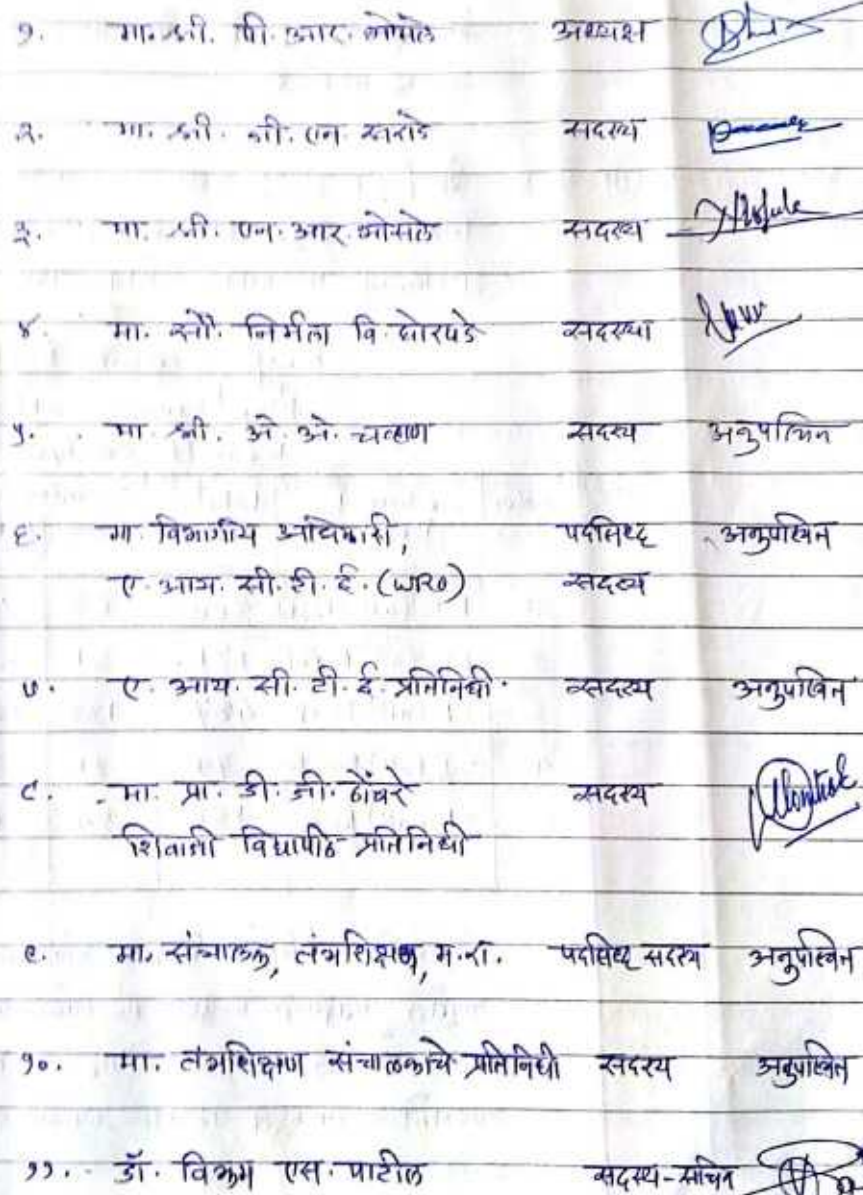 १. मा. श्री. पी. आर. भोसले अध्यक्ष
२. मा. श्री. जी. एन. खराडे सदस्य
३. मा. श्री. एन. आर. भोसले सदस्य
४. मा. सौ. निर्मला वि. घोरपडे सदस्या
५. मा. श्री. अे. अे. चव्हाण सदस्य अनुपस्थित
६. मा. विभागीय अधिकारी, पदसिध्द अनुपस्थित
ए. आय. सी. टी. ई. (WRO) सदस्य
७. ए. आय. सी. टी. ई. प्रतिनिधी. सदस्य अनुपस्थित
८. मा. प्रा. डी. जी. ठोंबरे सदस्य
शिवाजी विद्यापीठ प्रतिनिधी
९. मा. संचालक, तंत्रशिक्षण, म.रा. पदसिध्द सदस्य अनुपस्थित
१०. मा. तंत्रशिक्षण संचालकांचे प्रतिनिधी सदस्य अनुपस्थित
११. डॉ. विक्रम एस. पाटील सदस्य-सचिव